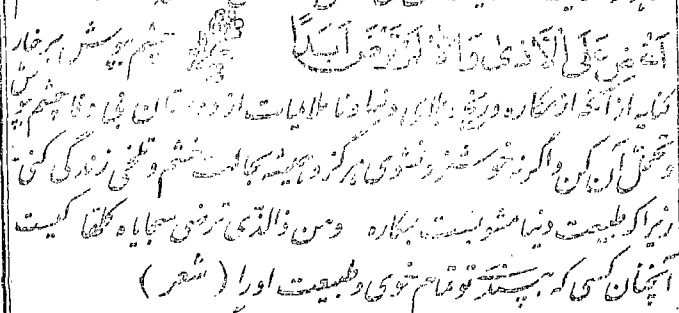 اَغْضِ عَلَی الْاَذٰی وَاِلَّا لَمْ تَرْضَ اَبَدًا چشم بپوش بر خار
کنایه از آنکه از مکاره و رنج و بلای دنیا و ناملایمات از دوستان بی وفا چشم پوش
و تحمّل آن کن و اگر نه خوشنود نشوی هرگز و همیشه بحالت خشم و تلخی زندگی کنی
زیرا که طبیعت دنیا مشوبست بمکاره ومن ذالذی ترضی سجایاه کلّها کیست
آنچنان کسی که بپسندی تو تمام خوی و طبیعت او را ( شعر )